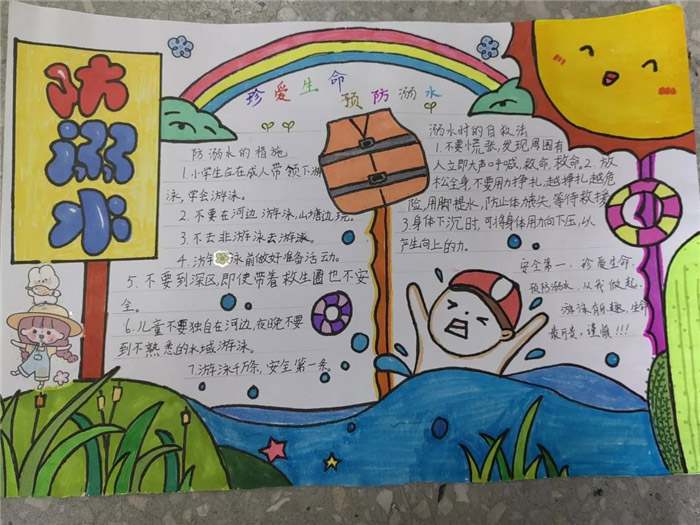 防溺水
珍爱生命
预防溺水
防溺水的措施
1.小学生应在成人带领下游
泳,学会游泳。
2.不要在河边,游泳,山塘边玩。
3.不去非游泳去游泳。
4.游泳前做好准备活动。
5.不要到深区,即使带着救生圈也不安
全。
6.儿童不要独自在河边,夜晚不要
到不熟悉的水域游泳。
7.游泳千万条,安全第一条。
溺水时的自救法
1.不要慌张,发现周围有
人立即大声呼喊,救命,救命,2.放
松全身,不要用力挣扎,越挣扎越危
险,用脚提水,防止体力损失,等待救援
3.身体下沉时,可将身体用力向下压,以
产生向上的力。
安全第一,珍爱生命,
预防溺水,从我做起,
游泳有趣,生命
最可贵,谨慎!!!